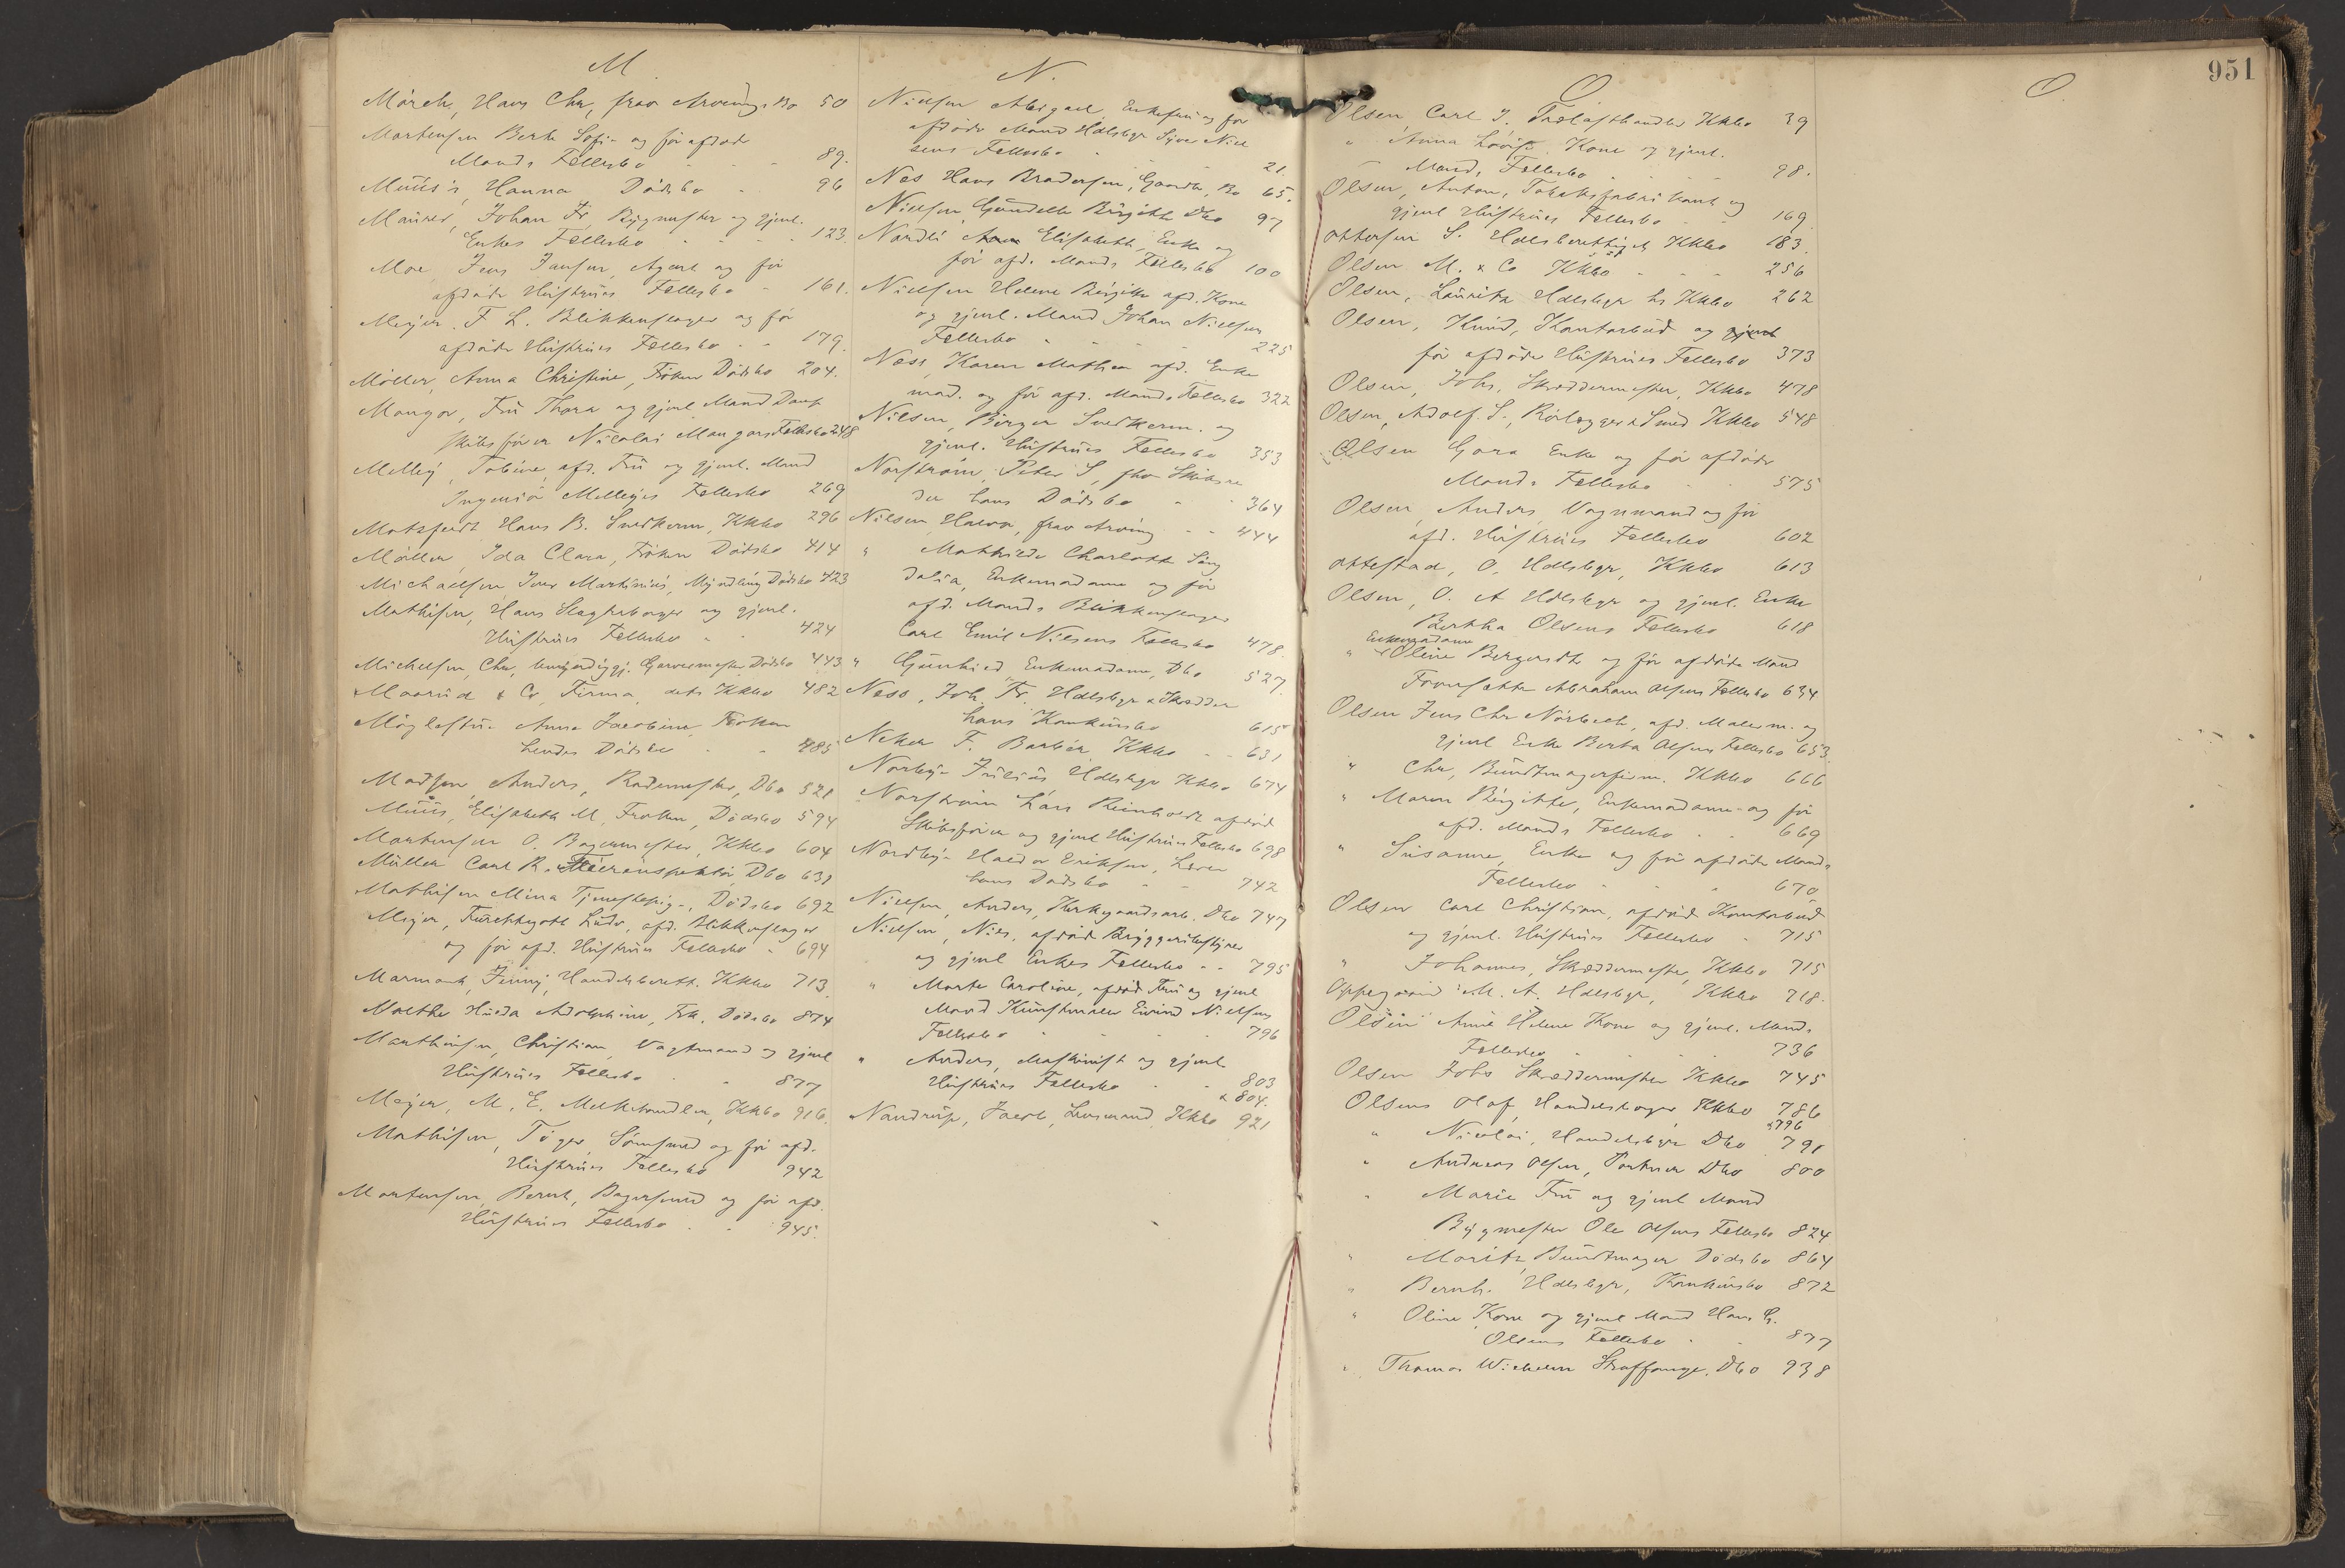 M.
Mörch, Hans Chr, frav Arvings Bo 50
Mortensen Berte Sofie og før afdøde
Mands Fællesbo - - - 89.
Müüs's, Hanna Dødsbo - 96
Maurer, Johan Fr, Bygmester og gjenl.
Enkes Fællesbo - - - - 123.
Moe Jens Jansen, Agent og før
afdøde Hustrues Fællesbo - 161.
Meyer F. L. Blikkenslager og før
afdøde Hustrues Fællesbo - - 179.
Möller, Anna Christine, Frøken Dødsbo 204.
Mangor, Fru Thora og gjenl. Mand Damp
skibsfører Nicolai Mangors Fællesbo 248
Melley, Tobine, afd. Fru og gjenl. Mand
Ingeniør Melleyes Fællesbo 269
Matzfeldt Hans B. Snedkerm, Kkbo 296
Möller, Ida Clara, Frøken Dødsbo 414
Michaelsen Iver Martinius, Myndling Dødsbo 423
Mathisen, Hans Slagterborger og gjenl.
Hustrues Fællesbo - - 424
Michelsen, Chr, umyndiggj. Garvermester Dødsbo 443
Maarud & Co, Firma, dets Kkbo 482
Möglestu- Anne Jacobine, Frøken
hendes Dødsbo - - 485
Madsen, Anders, Rodemester, Dbo 521
Müüs, Elisabeth M, Frøken, Dødsbo 594
Mortensen O. Bagermester, Kkbo 604
Müller Carl R. Dbo 631
Mathisen Mina Tjenestepige, Dødsbo 692
Meyer, Fürchtegott Ludv, afd. Blikkenslager
og før afd. Hustrues Fællesbo - 694
Marmark, Jenny, Handelsberett. Kkbo 713
Malthe Hulda Adolphine, Frk. Dødsbo 874
Marthinsen, Christian Vagtmand og gjenl
Hustrues Fællesbo - - 877
Meyer, M. E. Melkehandler, Kkbo 916.
Mathisen, Tøger, Sømsmed og før afd.
Hustrues Fællesbo 942
Mortensen, Bernt, Bagersvend og før afd.
Hustrues Fællesbo - - 945.
N.
Nielsen Abigael Enkefru og før
afdøde Mand Hdlsbgr Syver Niel
sens Fællesbo - - - 21.
Næs Hans Bradersen, Gaardbr, Bo 65.
Nielsen, Gunelle Birgitte Dbo 97
Nordli Elisabeth, Enke og
før afd. Mands Fællesbo 100
Nielsen Helene Birgitte afd. Kone
og gjenl. Mand Johan Nielsens
Fællesbo - - - 225
Næss, Karen Mathea afd. Enke
mad. og før afd. Mands Fællesbo 322
Nilsen, Birger Snedkerm. og
gjenl. Hustrues Fællesbo 353
Norström, Peter S, fhv Skibsre
der hans Dødsbo - - 364
Nilsen, Halvor, frav Arving - - 444
" Mathilde Charlotte
Enkemadame og før
afd. Mands Blikkenslager
Carl Emil Nilsens Fællesbo 478.
" Gunhild, Enkemadame, Dbo 527
Næss, Joh. Fr. Hdlsbgr & Skrædder
hans Konkursbo 615
Neker F. Barber Kkbo - - 631
Norby- Julius Hdlsbgr Kkbo 674
Norström Lars Reinholdt afdød
Skibsfører og gjenl Hustrues Fællesbo 698
Nordby- Haldor Eriksen, Lærer
hans Dødsbo - - 742
Nielsen, Anders, Kirkegaardsarb. Dbo 747
Nielsen, Nils, afdød Bryggeribestyrer
og gjenl Enkes Fællesbo - - 795
" Marte Caroline, afdød Fru og gjenl
Mand Kunstmaler Eivind Nielsens
Fællesbo - - - 796
" Anders, Maskinist og gjenl
Hustrues Fællesbo - - 803
& 804.
Nandrup, Jacob, Lensmand, Kkbo 921
951
O.
Olsen Carl J. Trælasthandler Kkbo 39
" Anna Lovise Kone og gjenl.
Mands Fællesbo - - - 98.
Olsen, Anton, Tobaksfabrikant og
gjenl Hustrues Fællesbo - - 169
Ottersen S. Hdlsberettiget Kkbo 183.
Olsen M. & Co Kkbo - - - 256
Olsen, Lauritz Hdlsbgr hs Kkbo 262
Olsen, Knud, Kontorbud og gjenl
før afdøde Hustrues Fællesbo 373
Olsen, Johs, Skræddermester, Kkbo 478
Olsen, Adolf S., Rørlægger & Smed Kkbo 548
Olsen Gora Enke og før afdøde
Mands Fællesbo - - 575
Olsen, Anders Vognmand og før
afd. Hustrues Fællesbo 602
Ottestad, O, Hdlsbgr, Kkbo 613
Olsen, O. A Hdlsbgr og gjenl. Enke
Bertha Olsens Fællesbo 618
Enkemadame
" Oline Bergersdtr og før afdøde Mand
Forsatte Abraham Olsens Fællesbo 634
Olsen Jens Chr Nörbech, afd. Malerm. og
gjenl Enke Berta Olsens Fællesbo 653.
" Chr, Bundtmagerfirm. Kkbo 666
" Maren Birgitte, Enkemadame og før
afd. Mands Fællesbo - - 669
" Susanne, Enke og før afdøde Mands
Fællesbo - - 670
Olsen Carl Christian, afdød Kontorbud
og gjenl. Hustrues Fællesbo - 715
" Johannes, Skræddermester, Kkbo 715
Oppegaard M. A. Hdlsbgr, Kkbo 718.
Olsen Anne Helene Kone og gjenl. Mands
Fællesbo - - - 736
Olsen Johs Skræddermester Kkbo 745
Olsens Olaf Handelsborger Kkbo 786
& 796
" Nicolai, Handelsbgr Dbo 791
" Andreas Olsen, Portner Dbo 800
" Marie Fru og gjenl Mand
Bygmester Ole Olsens Fællesbo 824
" Moritz, Bundtmager Dødsbo 864
" Bernh. Hdlsbgr, Konkursbo 872
" Oline Kone og gjenl Mand Hans G.
Olsens Fællesbo - - 877
" Thomas Wilhelm Straffange, Dbo 938
O